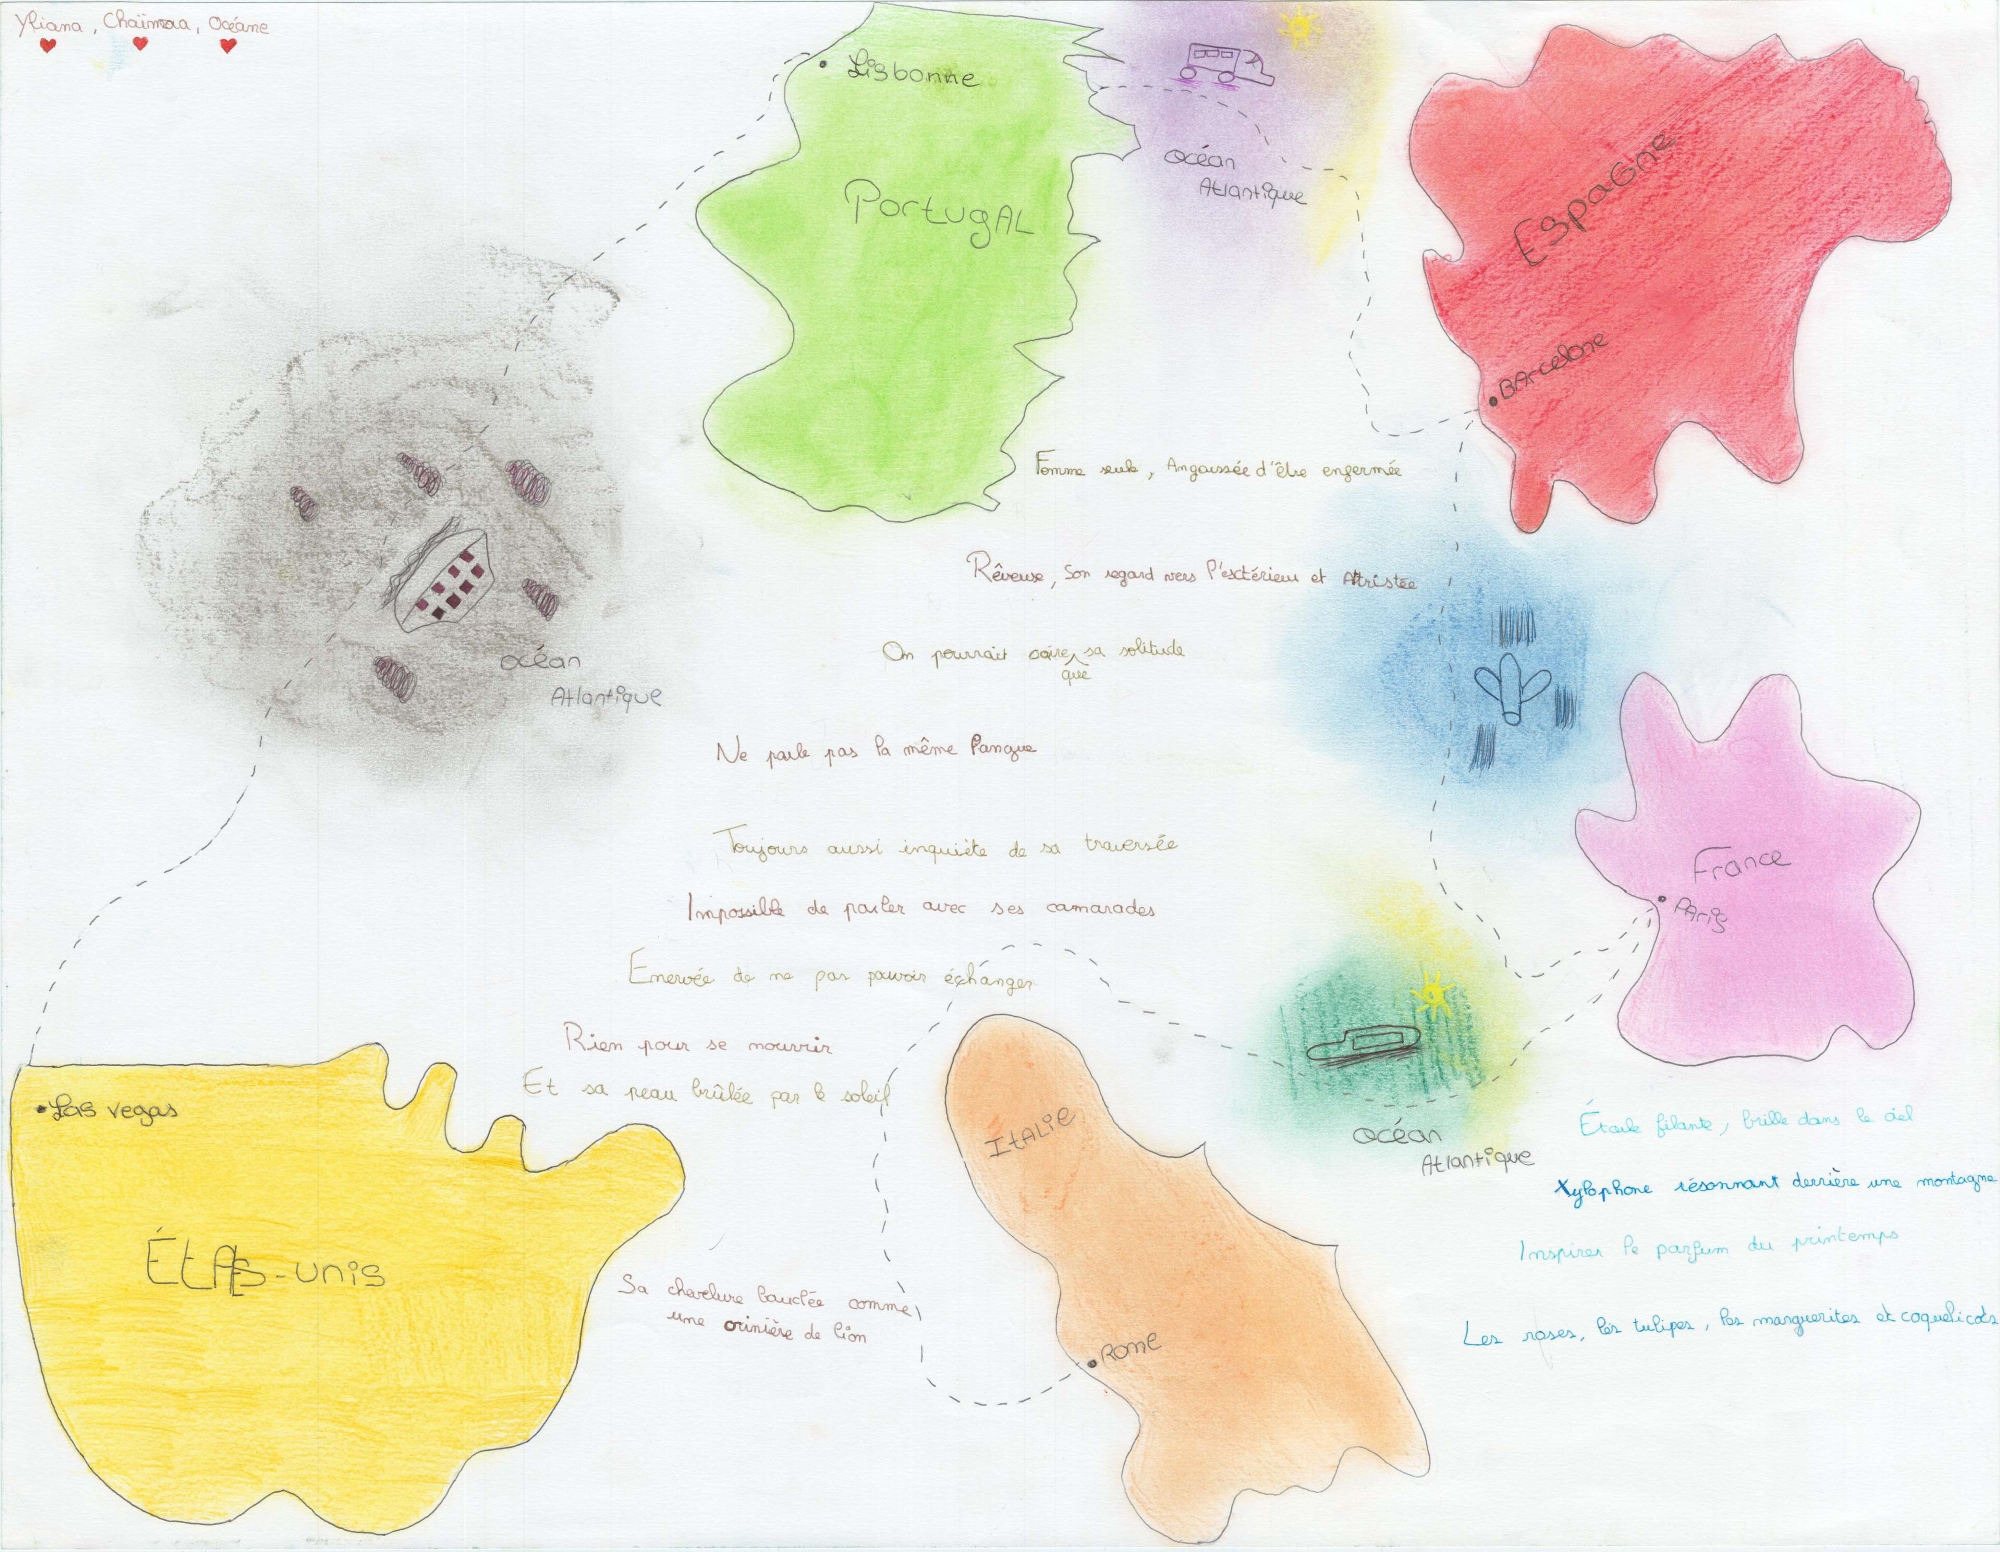 Yliana, Chaïmaa, Océane
Lisbonne
Portugal
océan
Atlantique
Espagne
Barcelone
océan
Atlantique
Femme seule, Angoissée d'être enfermée
Rêveuse, Son regard vers l'esctérieur et Attristée
On pourrait croire sa solitude
que
Ne parle pas la même langue
Toujours aussi inquiète de sa traversée
Impossible de parler avec ses camarades
Enervée de ne pas pouvoir échanger
Rien pour se nourrir
Et sa peau brûlée par le soleil
Sa chevelure bouclée comme
une crinière de lion
France
Paris
océan
Atlantique
Las vegas
États-unis
Italie
Rome
Étoile filante, brille dans le ciel
Xylophone résonnant derrière une montagne
Inspirer le parfum du printemps
Les roses, les tulipes, les marguerites et coquelicots